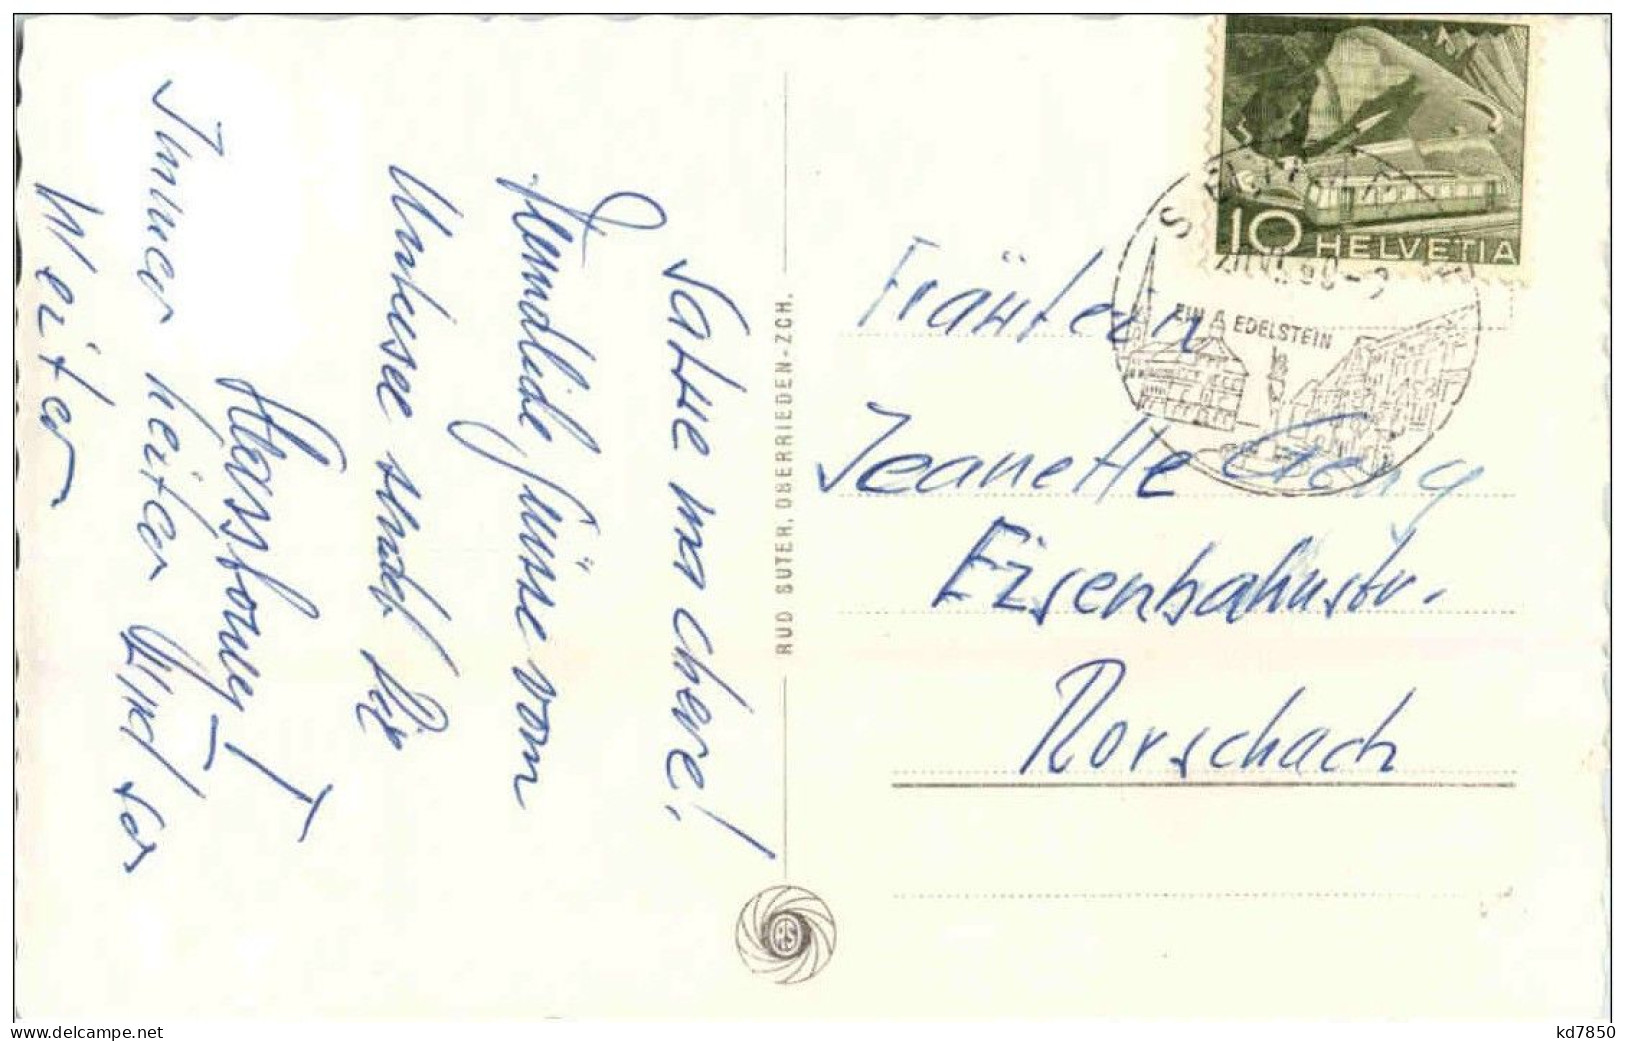 Salue ma chère!
Freundliche Grüsse vom
Untersee sendet Dir
Immer heiter und so
Weiter
RUD SUTER, OBERRIEDEN-ZCH.
RS
10 HELVETIA
EIN EDELSTEIN
Fräulein
Jeanette
Eisenbahnstr.
Rorschach
www.delcampe.net
kd7850